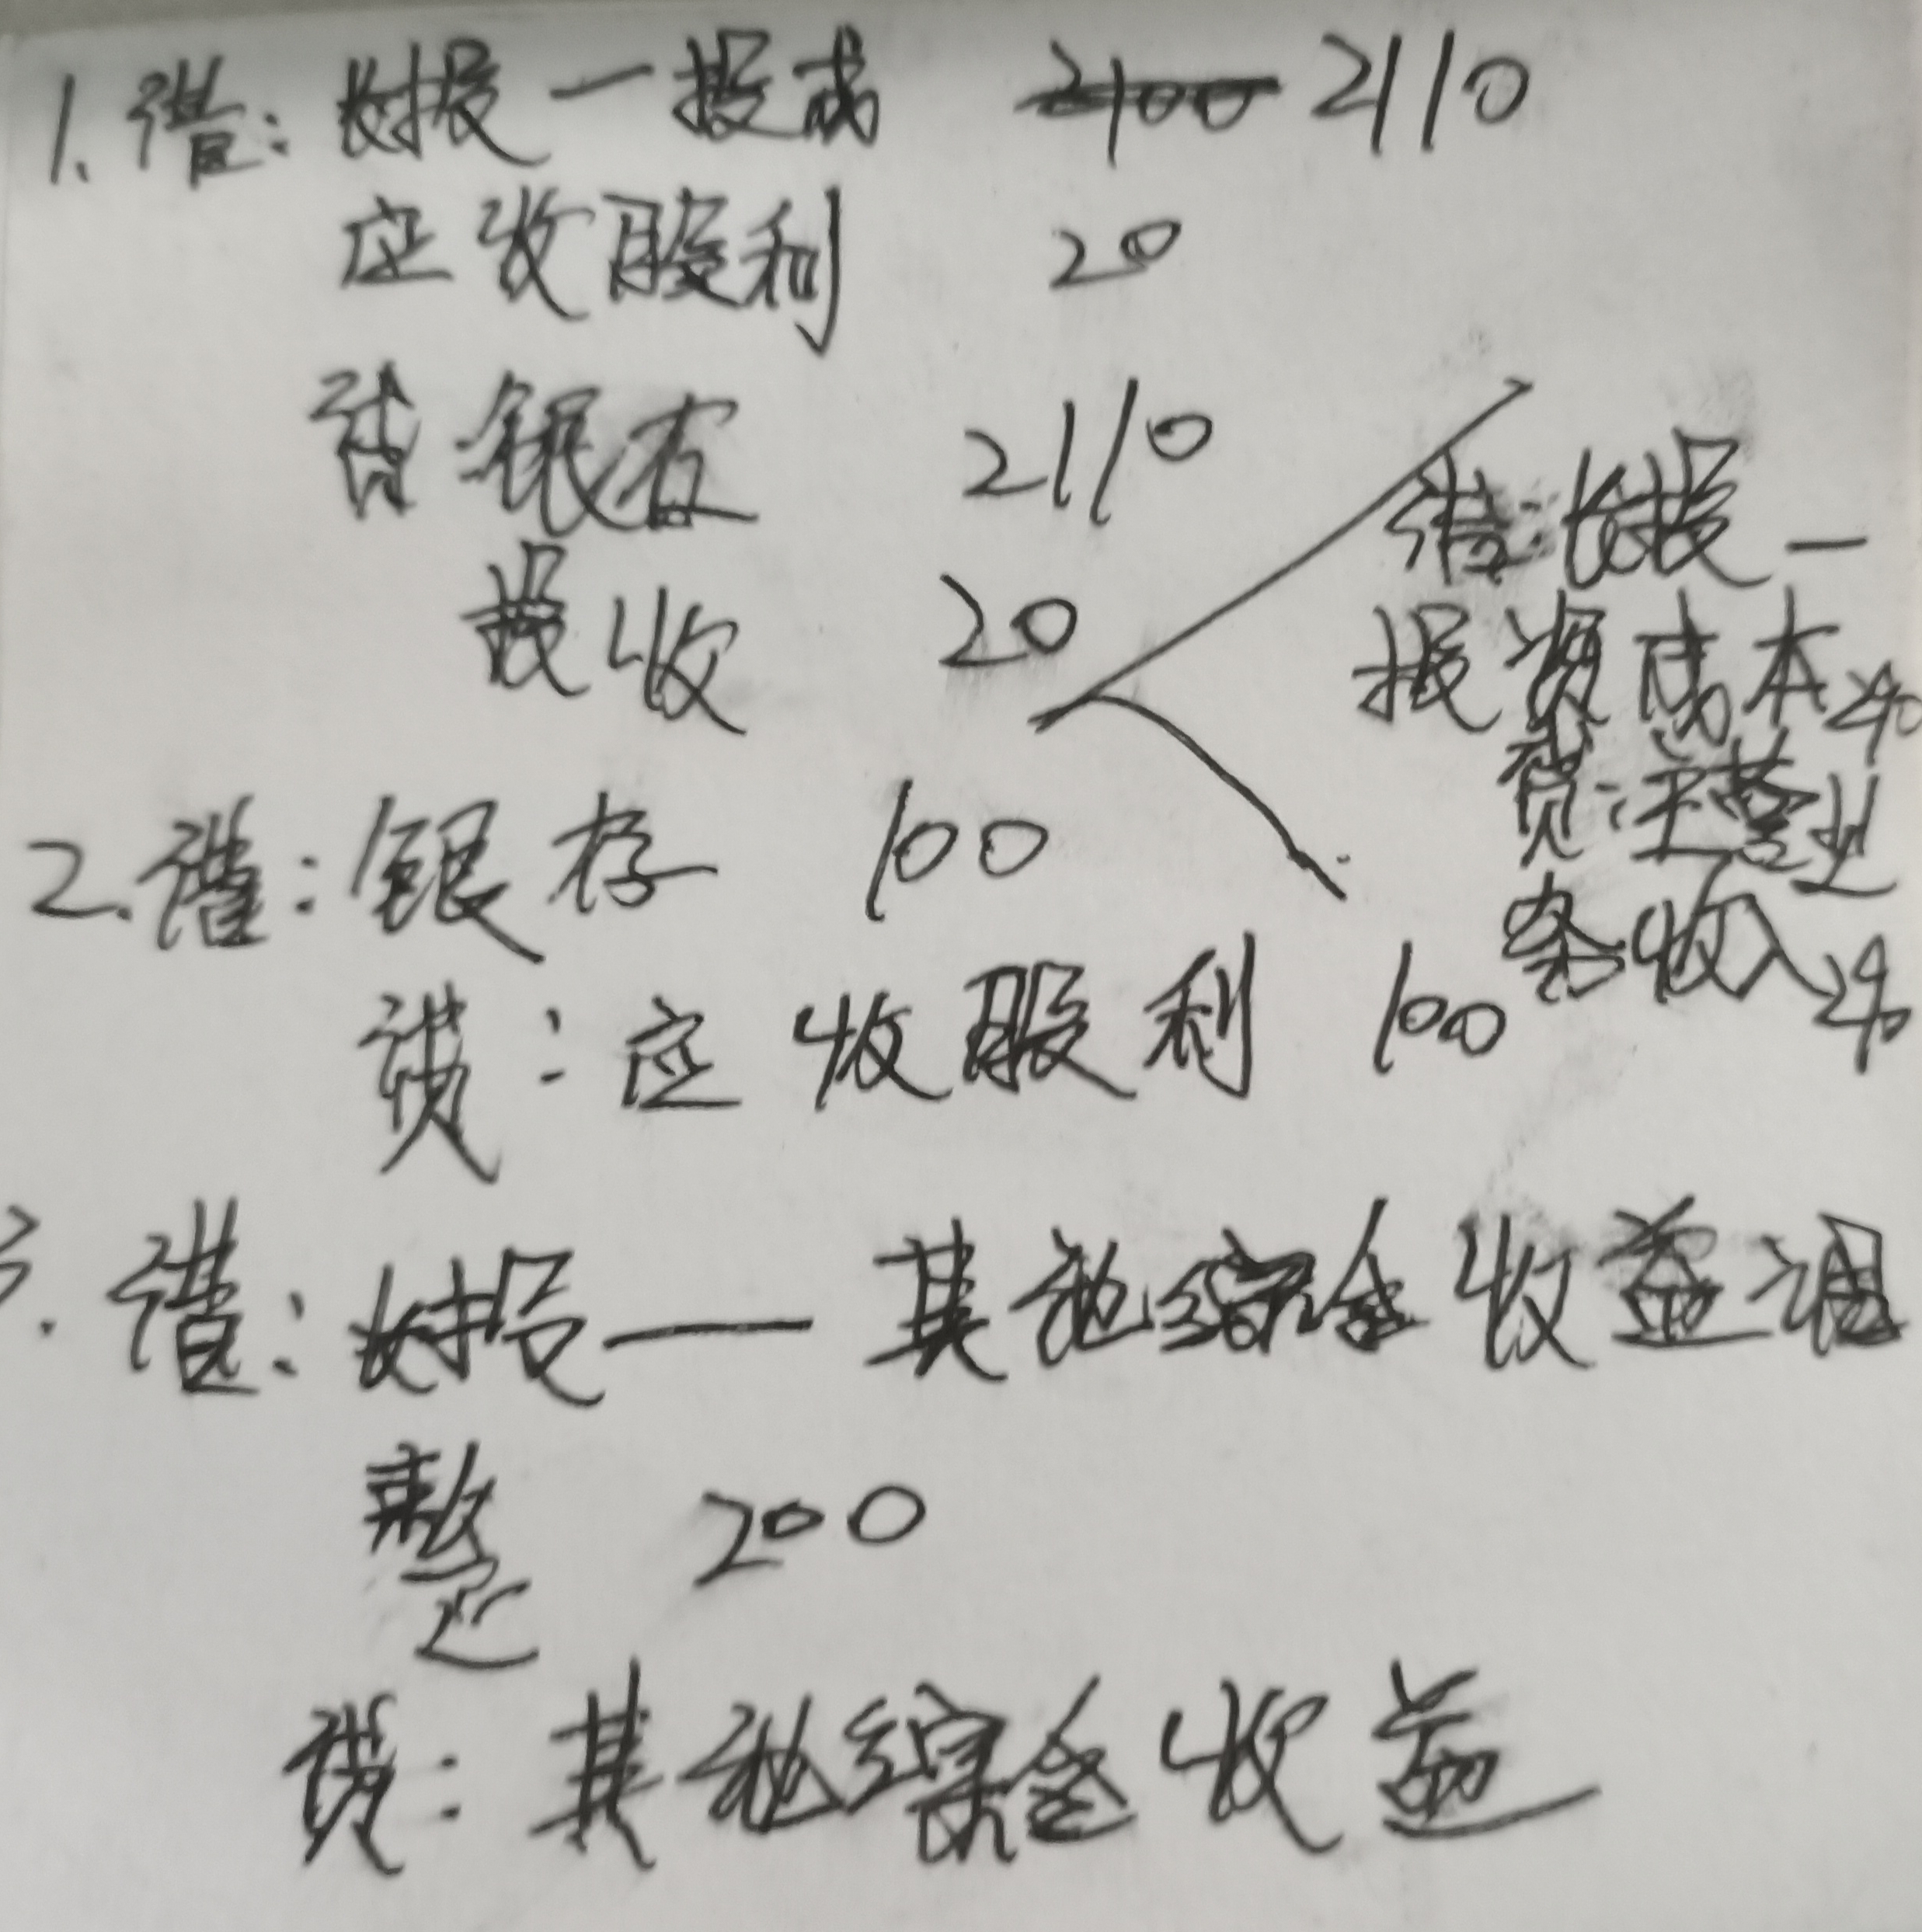 1. 借: 长投一投成 2100 2110
应收股利 20
贷:银存 2110
投收 20
借:长投一
投资成本 290
贷:主营业
务收入 290
2. 借: 银存 100
贷: 应收股利 100
3. 借: 长投 — 其他综合收益调
整 200
贷: 其他综合收益